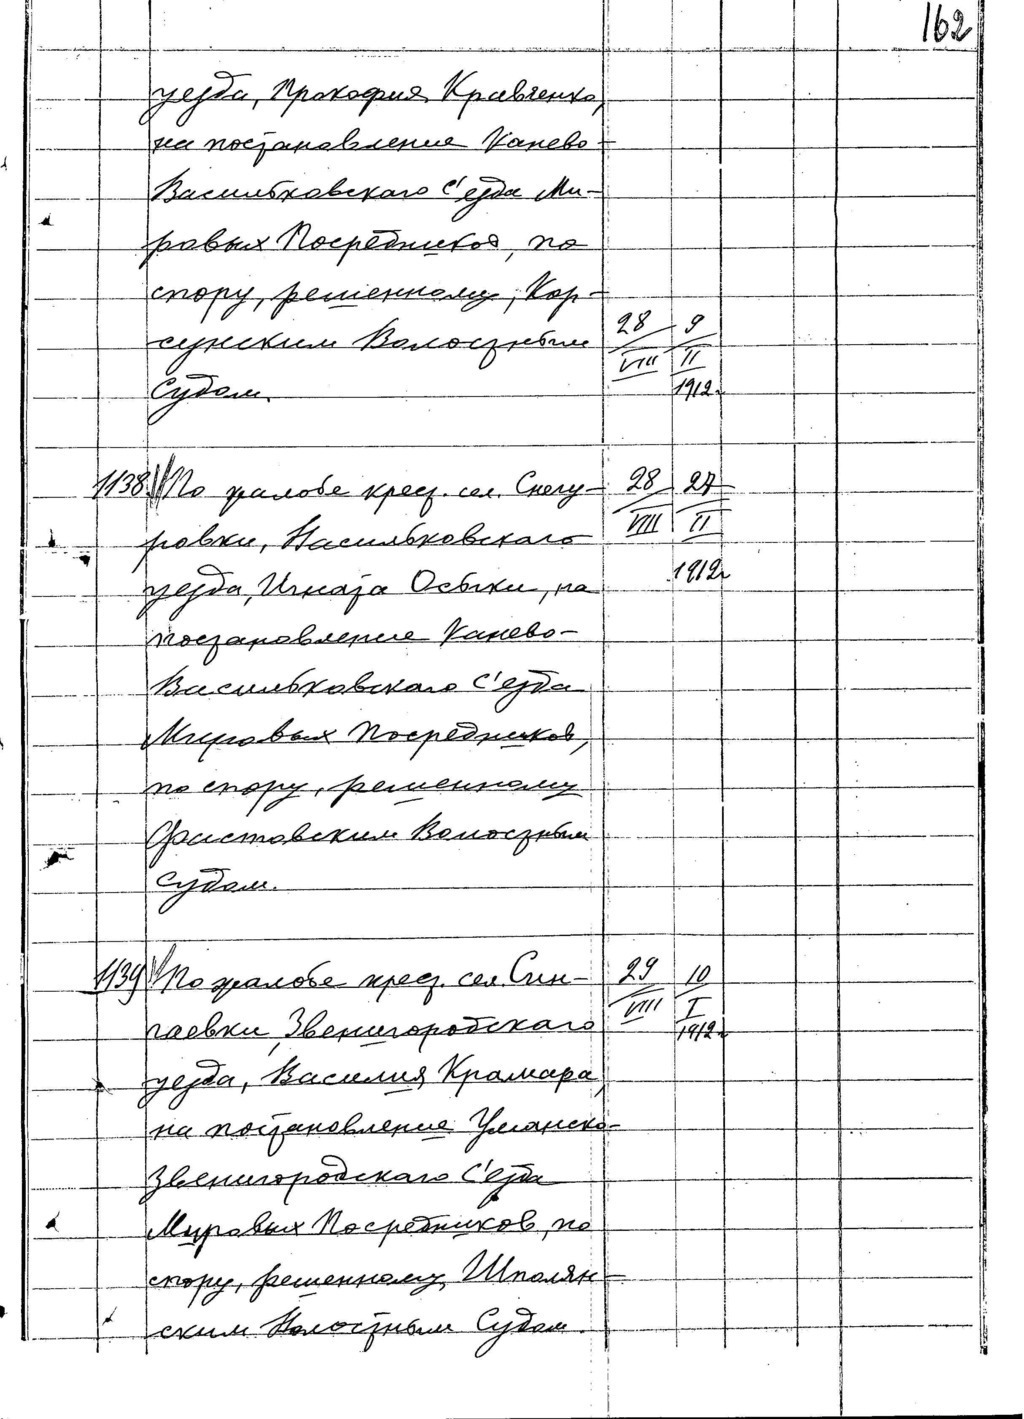 162
уезда, Прокофия Кравченко,
на постановление Канево-
Васильковскаго С'езда Ми-
ровых Посредников, по
спору, решенному, Кор-
сунским Волостным 28 9
VIII II
Судом. 1912г
1138 По жалобе крест. сел. Снегу- 28 27
VIII II
ровки, Васильковскаго
1912г
уезда, Игната Осыки, на
постановление Канево-
Васильковскаго С'езда
Мировых Посредников,
по спору, решенному
Фастовским Волостным
Судом.
1139 По жалобе крест. сел. Син- 29 10
VIII I
гаевки, Звенигородскаго 1912г
уезда, Василия Крамара,
на постановление Уманско-
Звенигородскаго С'езда
Мировых Посредников, по
спору, решенному, Шполян-
ским Волостным Судом.